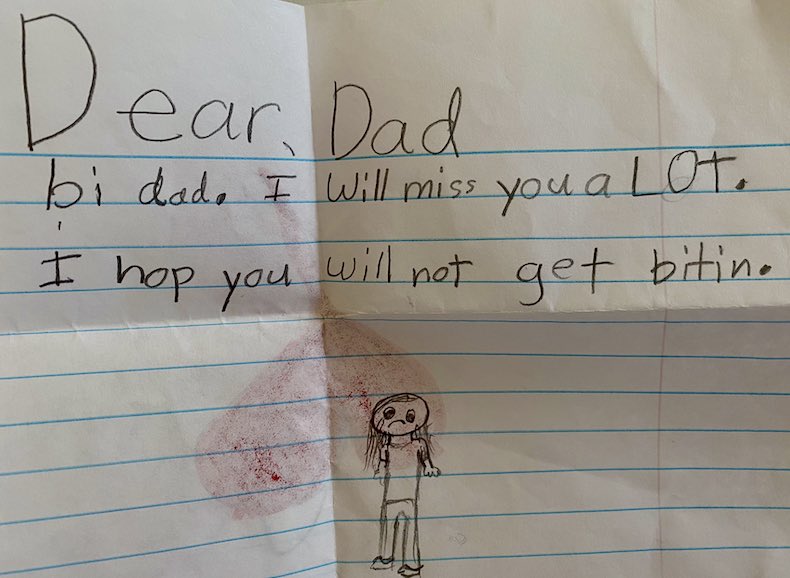 Dear, Dad
bi dad. I will miss you a LOT.
I hop you will not get bitin.